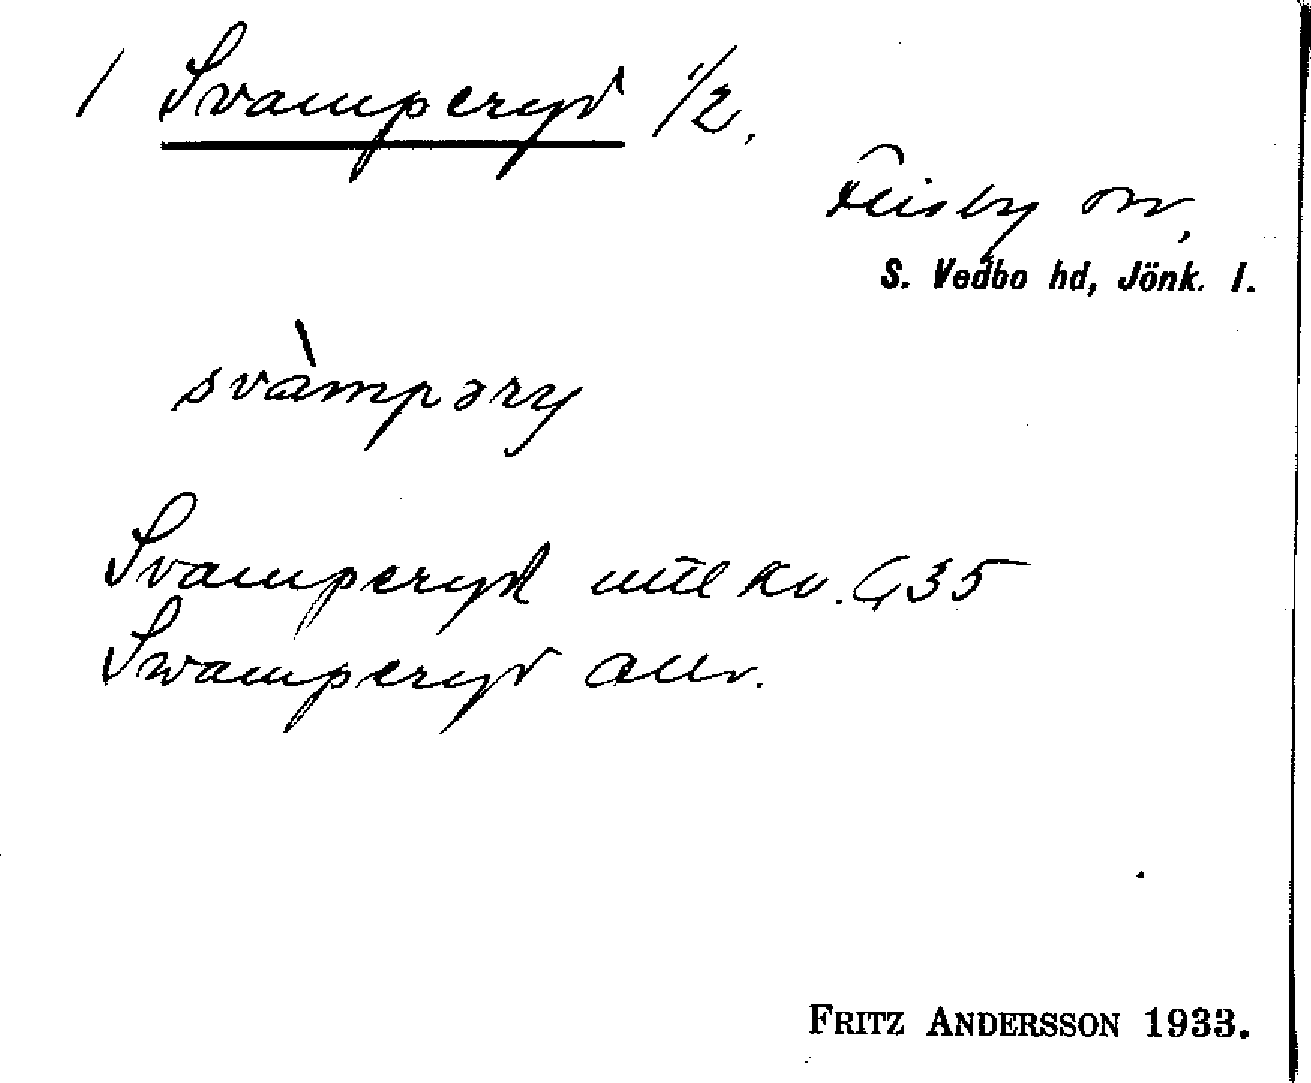 1 Svamperyd 1/2.
Flisby sn,
S. Vedbo hd, Jönk. l.
svàmpəry
Svamperyd mtl kv. G35
Swamperyd allm.
FRITZ ANDERSSON 1933.